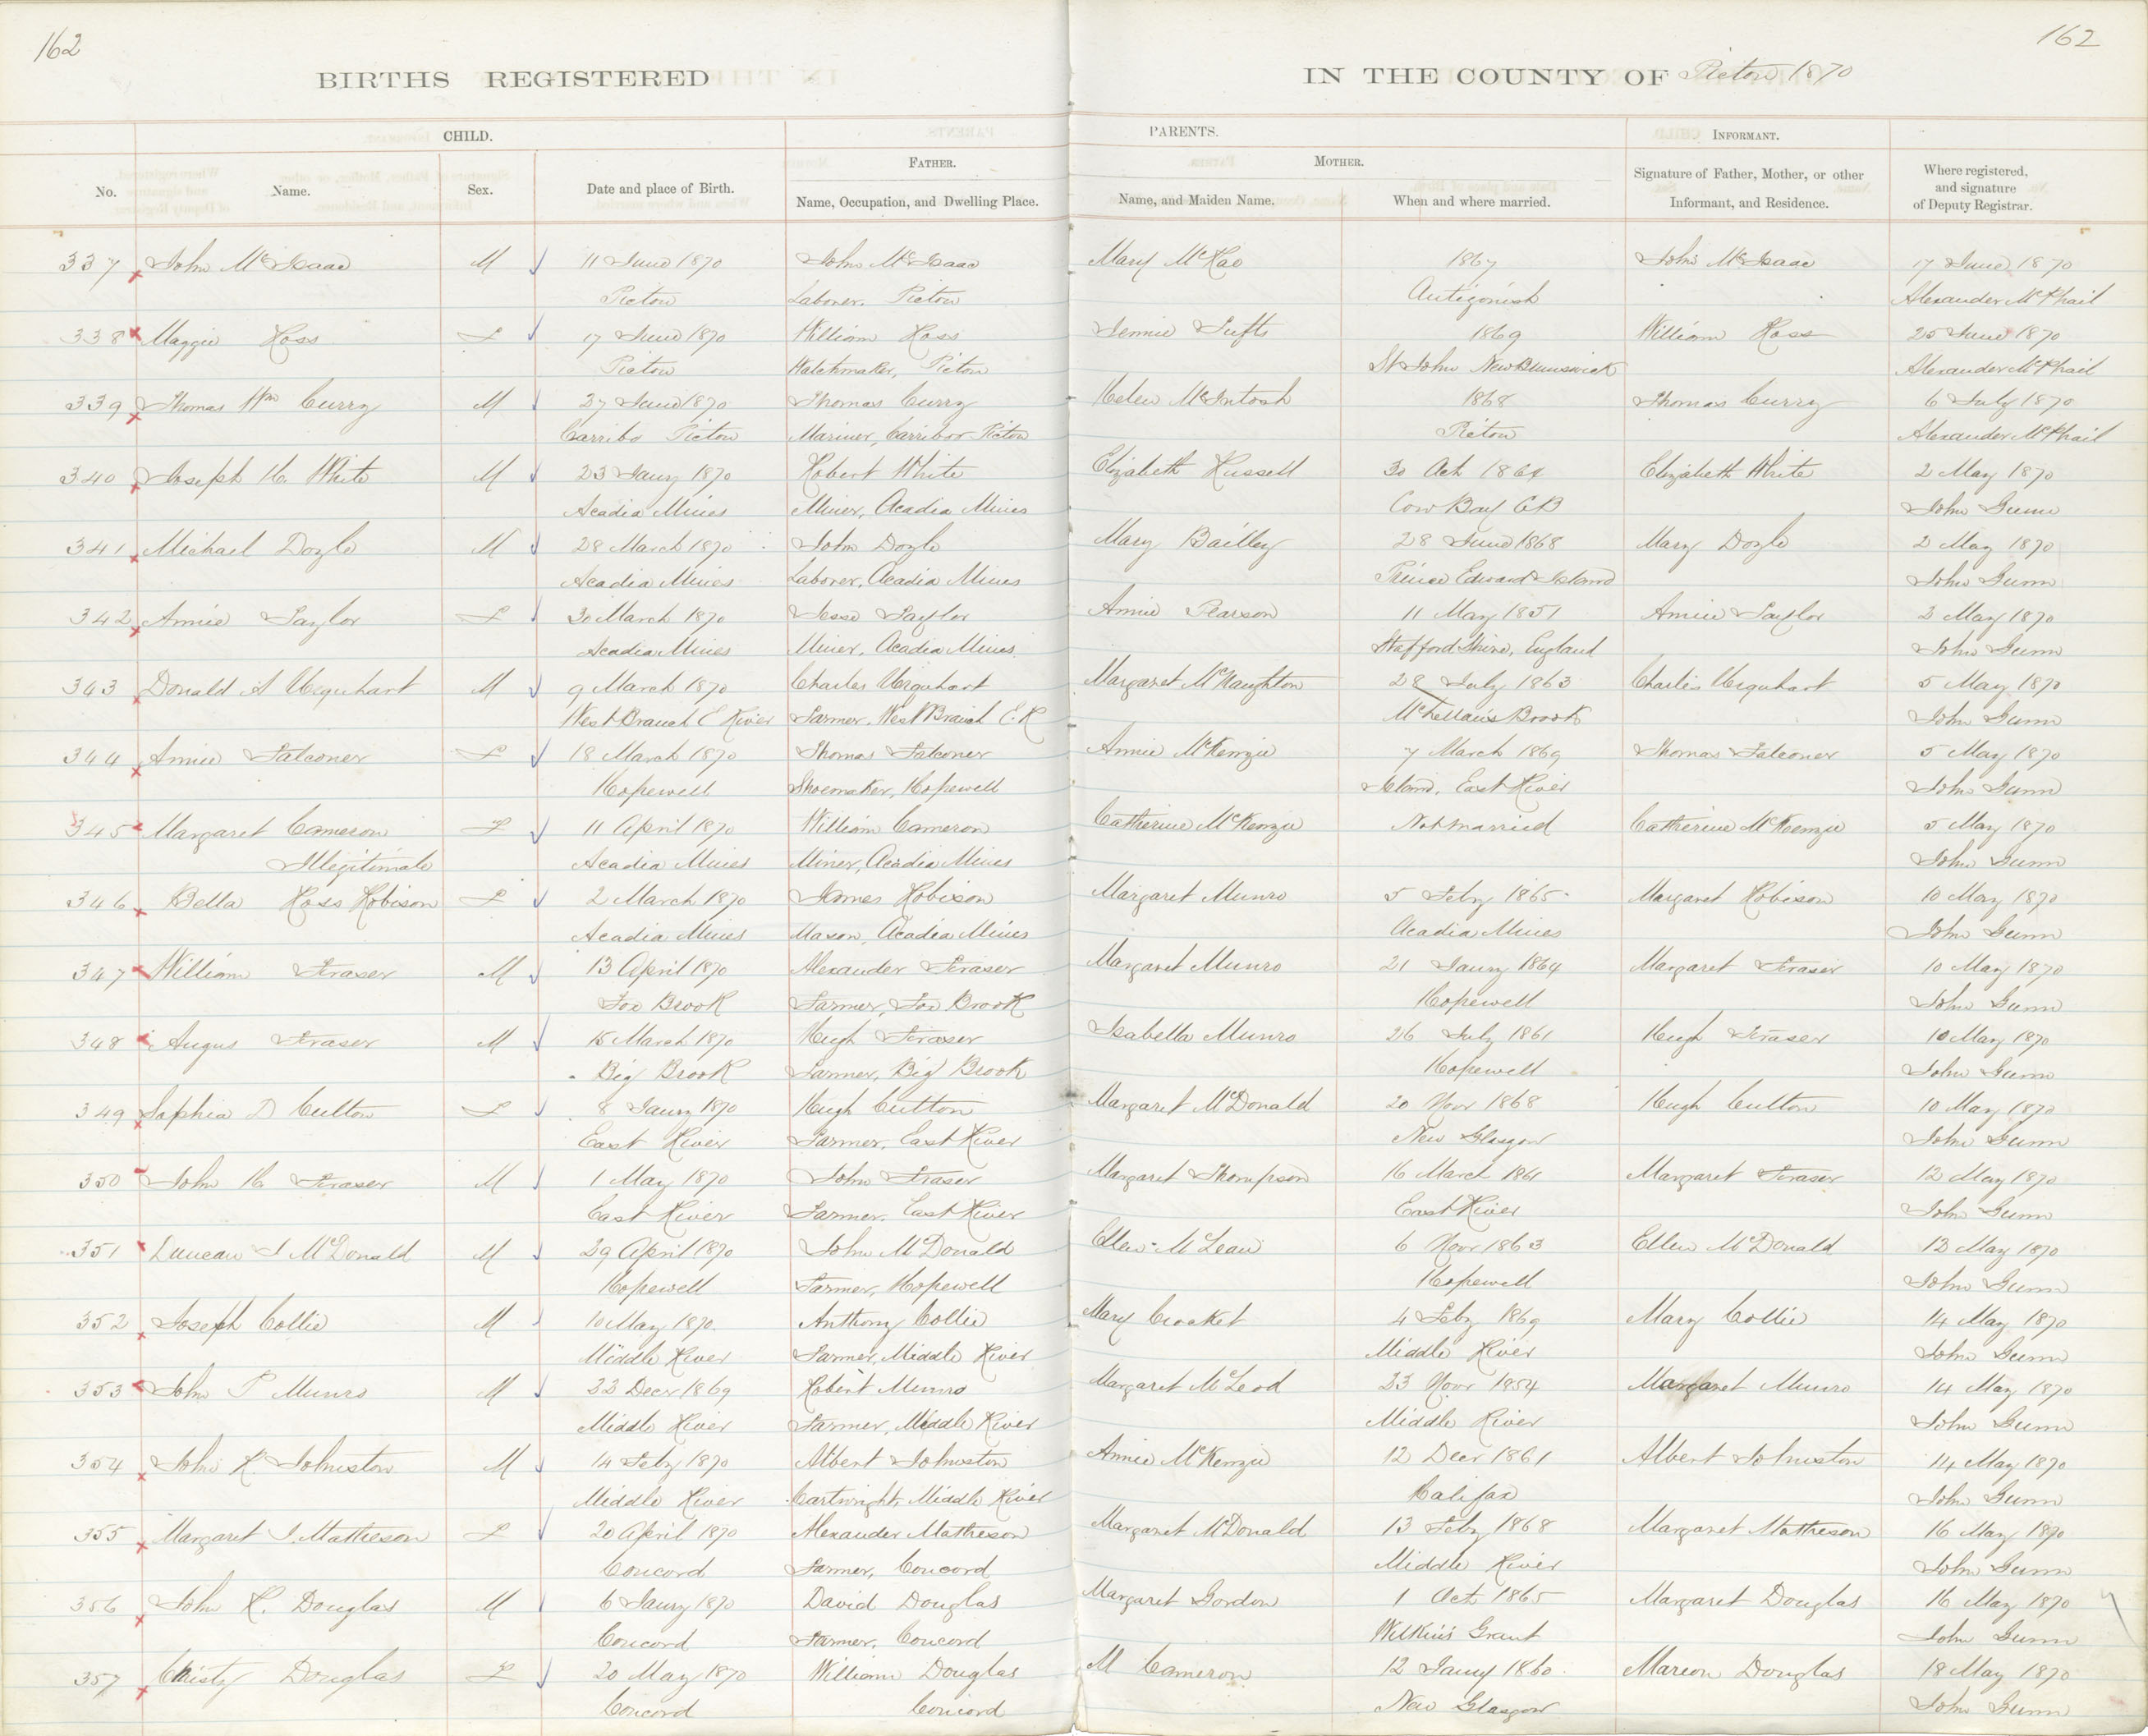 162
162
BIRTHS REGISTERED
IN THE COUNTY OF Pictou 1870
CHILD.
PARENTS.
INFORMANT.
FATHER.
MOTHER.
No.
Name.
Sex.
Date and place of Birth.
Name, Occupation, and Dwelling Place.
Name, and Maiden Name.
When and where married.
Signature of Father, Mother, or other Informant, and Residence.
Where registered, and signature of Deputy Registrar.
337 John McIsaac M 11 June 1870 John McIsaac Mary McRae 1867 John McIsaac 17 June 1870
Pictou Laborer, Pictou Antigonish Alexander McPhail
338 Maggie Ross F 17 June 1870 William Ross Jennie Tufts 1869 William Ross 25 June 1870
Pictou Watchmaker, Pictou St John New Brunswick Alexander McPhail
339 Thomas Wm Curry M 27 June 1870 Thomas Curry Helen McIntosh 1868 Thomas Curry 6 July 1870
Carribo Pictou Mariner, Carriboo Pictou Pictou Alexander McPhail
340 Joseph H. White M 23 Jany 1870 Robert White Elizabeth Russell 30 Oct Elizabeth White 2 May 1870
Acadia Mines Miner, Acadia Mines Cow Bay CB John Gunn
341 Michael Doyle M 28 March 1870 John Doyle Mary Bailley 28 June 1868 Mary Doyle 2 May 1870
Acadia Mines Laborer, Acadia Mines Prince Edward Island John Gunn
342 Annie Taylor F 30 March 1870 Jesse Taylor Annie Pearson 11 May 1851 Annie Taylor 2 May 1870
Acadia Mines Miner, Acadia Mines Stafford Shire, England John Gunn
343 Donald A Urquhart M 9 March 1870 Charles Urquhart Margaret McNaughton 28 July 1863 Charles Urquhart 5 May 1870
West Branch E River Farmer, West Branch E. R McLellan's Brook John Gunn
344 Annie Falconer F 18 March 1870 Thomas Falconer Annie McKenzie 7 March 1869 Thomas Falconer 5 May 1870
Hopewell Shoemaker, Hopewell Island, East River John Gunn
345 Margaret Cameron F 11 April 1870 William Cameron Catherine McKenzie Not married Catherine McKenzie 5 May 1870
Illegitimate Acadia Mines Miner, Acadia Mines John Gunn
346 Bella Ross Robison F 2 March 1870 James Robison Margaret Munro 5 Feby 1865 Margaret Robison 10 May 1870
Acadia Mines Mason, Acadia Mines Acadia Mines John Gunn
347 William Fraser M 13 April 1870 Alexander Fraser Margaret Munro 21 Jany 1864 Margaret Fraser 10 May 1870
Fox Brook Farmer, Fox Brook Hopewell John Gunn
348 Angus Fraser M 15 March 1870 Hugh Fraser Isabella Munro 26 July 1861 Hugh Fraser 10 May 1870
Big Brook Farmer, Big Brook Hopewell John Gunn
349 Sophia D Cutton F 8 Jany 1870 Hugh Cutton Margaret McDonald 20 Novr 1868 Hugh Cutton 10 May 1870
East River Farmer, East River New Glasgow John Gunn
350 John H Fraser M 1 May 1870 John Fraser Margaret Thompson 16 March 1861 Margaret Fraser 12 May 1870
East River Farmer, East River East River John Gunn
351 Duncan J McDonald M 29 April 1870 John McDonald Ellen McLean 6 Novr 1863 Ellen McDonald 13 May 1870
Hopewell Farmer, Hopewell Hopewell John Gunn
352 Joseph Collie M 10 May 1870 Anthony Collie Mary Crocket 4 Feby 1869 Mary Collie 14 May 1870
Middle River Farmer, Middle River Middle River John Gunn
353 John P Munro M 23 Decr 1869 Robert Munro Margaret McLeod 23 Novr 1854 Margaret Munro 14 May 1870
Middle River Farmer, Middle River Middle River John Gunn
354 John R. Johnston M 14 Feby 1870 Albert Johnston Annie McKenzie 12 Decr 1861 Albert Johnston 14 May 1870
Middle River Cartwright, Middle River Halifax John Gunn
355 Margaret J. Matheson F 20 April 1870 Alexander Matheson Margaret McDonald 13 Feby 1868 Margaret Matheson 16 May 1870
Concord Farmer, Concord Middle River John Gunn
356 John R. Douglas M 6 Jany 1870 David Douglas Margaret Gordon 1 Oct 1865 Margaret Douglas 16 May 1870
Concord Farmer, Concord Wilkin's Grant John Gunn
357 Christy Douglas F 20 May 1870 William Douglas M Cameron 12 Jany 1860 Marion Douglas 18 May 1870
Concord Concord New Glasgow John Gunn